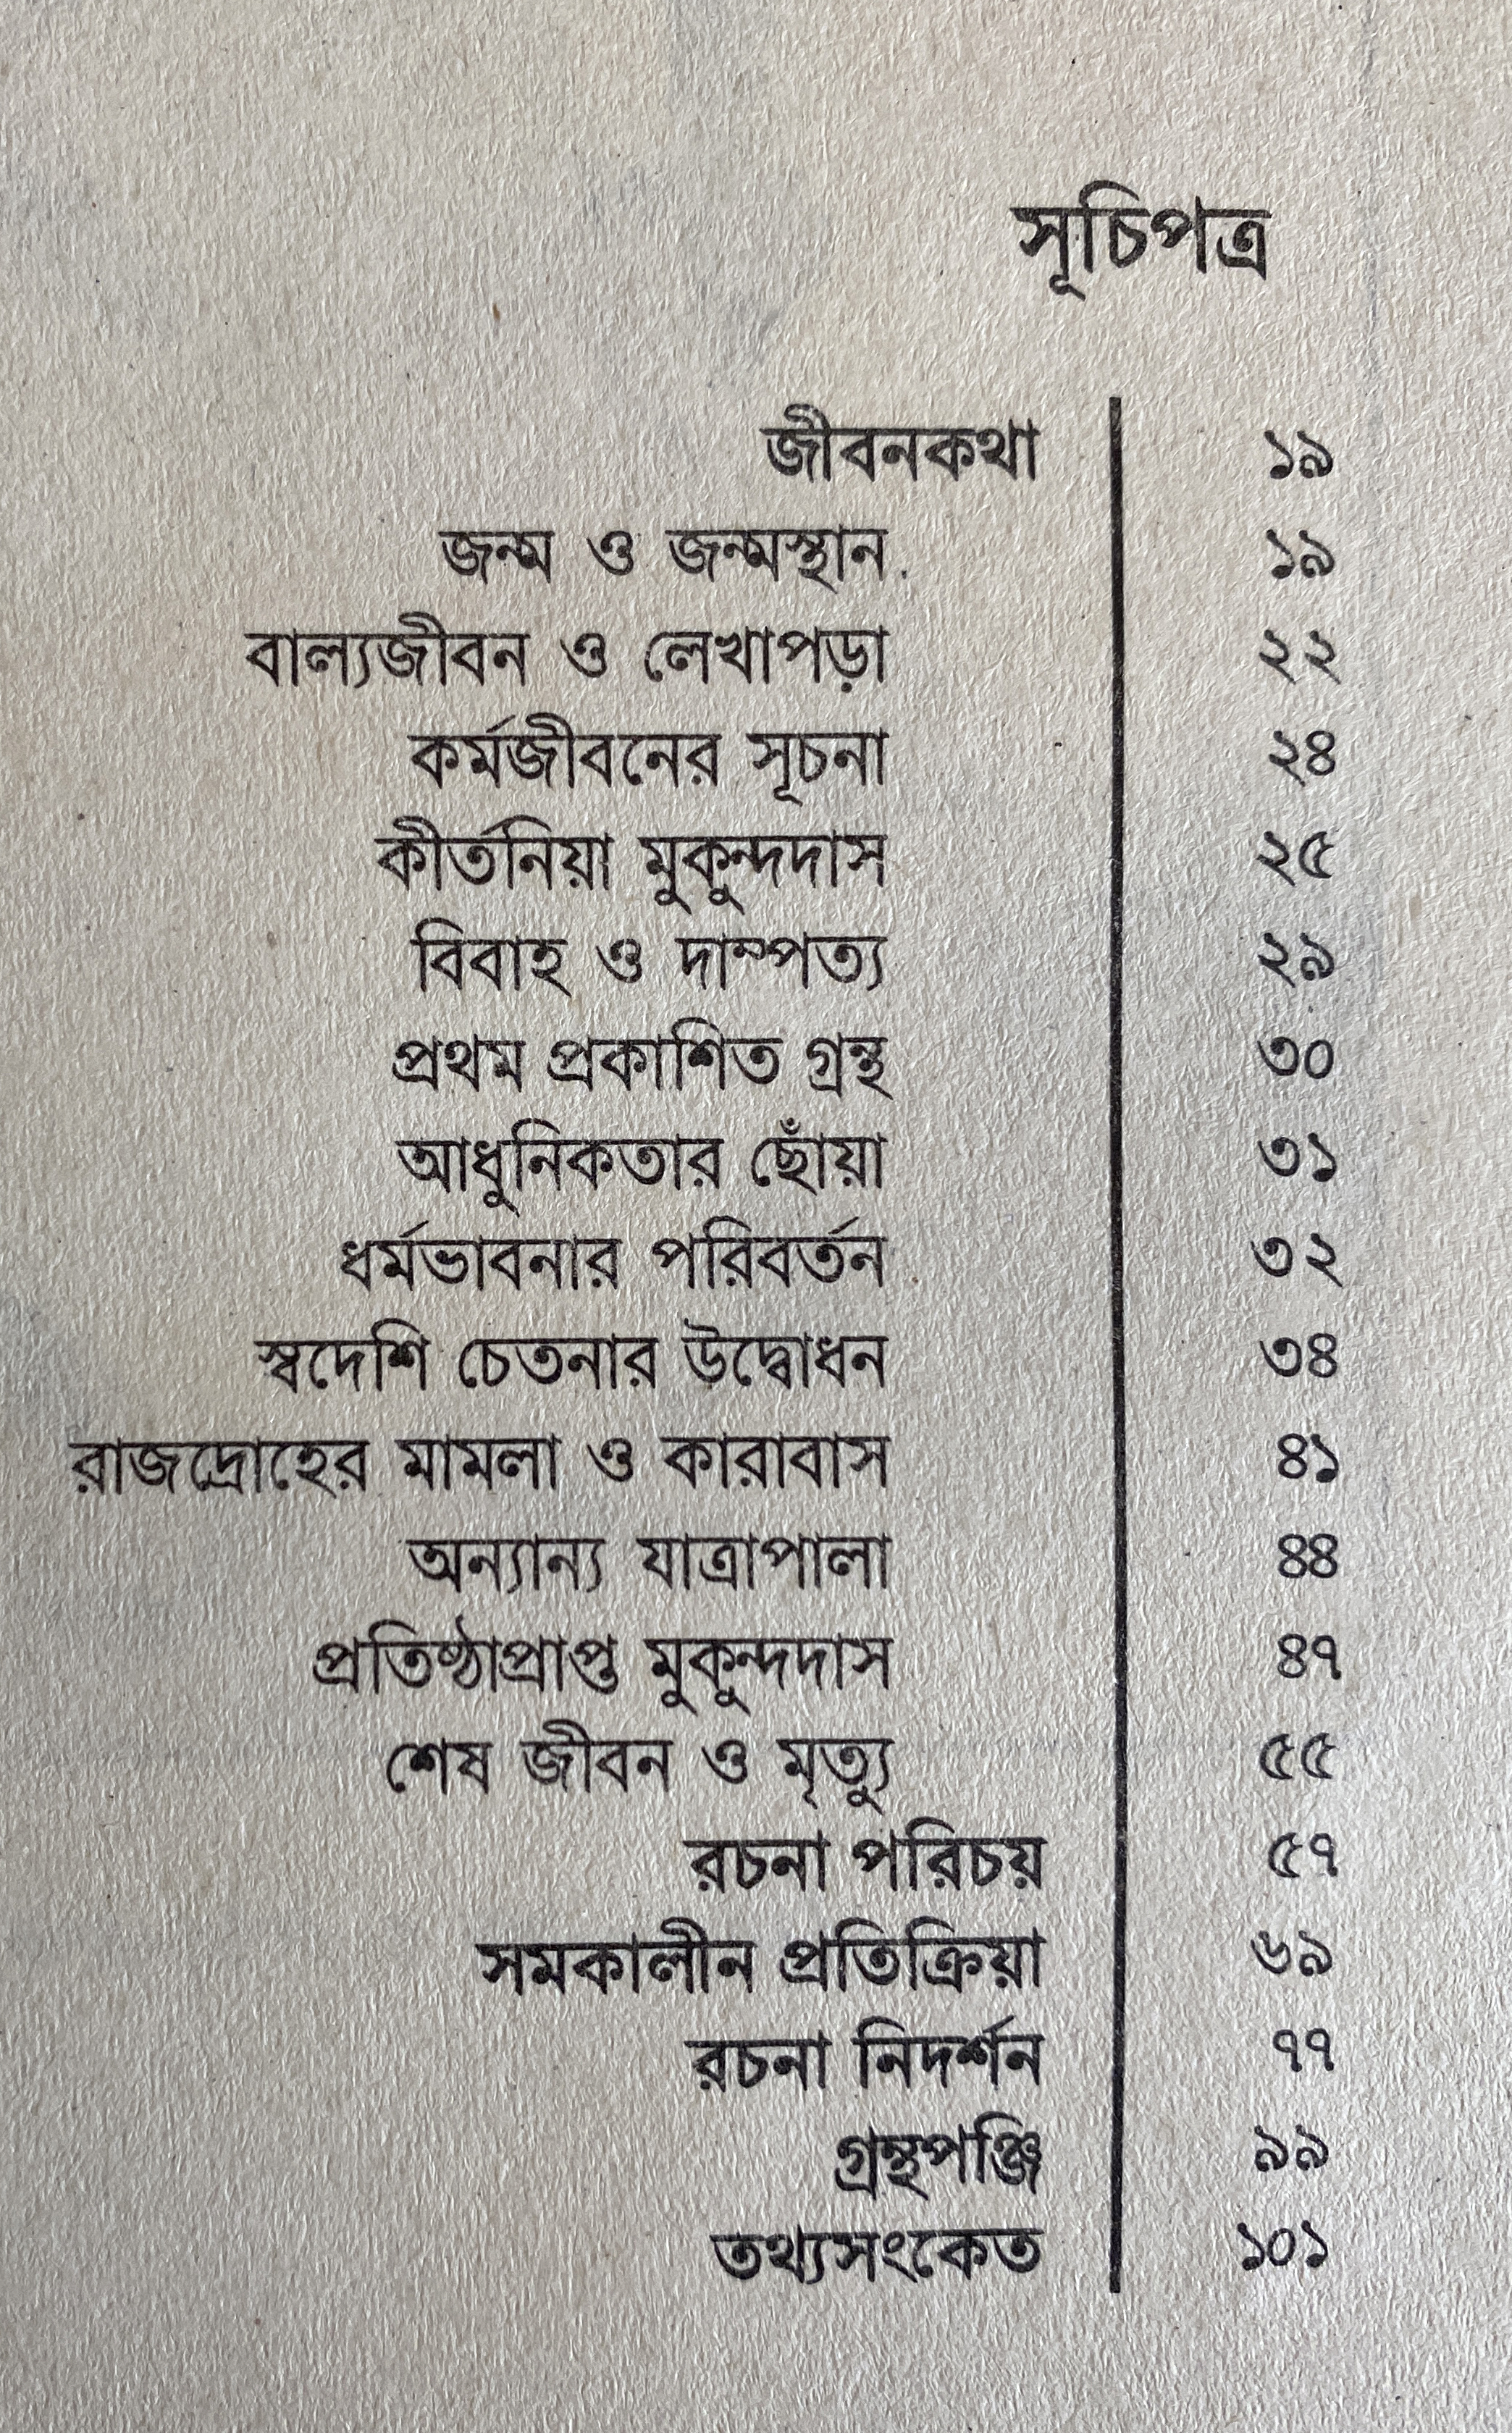 সূচিপত্র
জীবনকথা ১৯
জন্ম ও জন্মস্থান ১৯
বাল্যজীবন ও লেখাপড়া ২২
কর্মজীবনের সূচনা ২৪
কীর্তনিয়া মুকুন্দদাস ২৫
বিবাহ ও দাম্পত্য ২৯
প্রথম প্রকাশিত গ্রন্থ ৩০
আধুনিকতার ছোঁয়া ৩১
ধর্মভাবনার পরিবর্তন ৩২
স্বদেশি চেতনার উদ্বোধন ৩৪
রাজদ্রোহের মামলা ও কারাবাস ৪১
অন্যান্য যাত্রাপালা ৪৪
প্রতিষ্ঠাপ্রাপ্ত মুকুন্দদাস ৪৭
শেষ জীবন ও মৃত্যু ৫৫
রচনা পরিচয় ৫৭
সমকালীন প্রতিক্রিয়া ৬৯
রচনা নিদর্শন ৭৭
গ্রন্থপঞ্জি ৯৯
তথ্যসংকেত ১০১